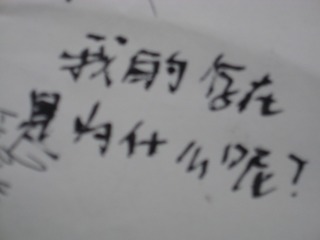 我的存在
是为什么呢?